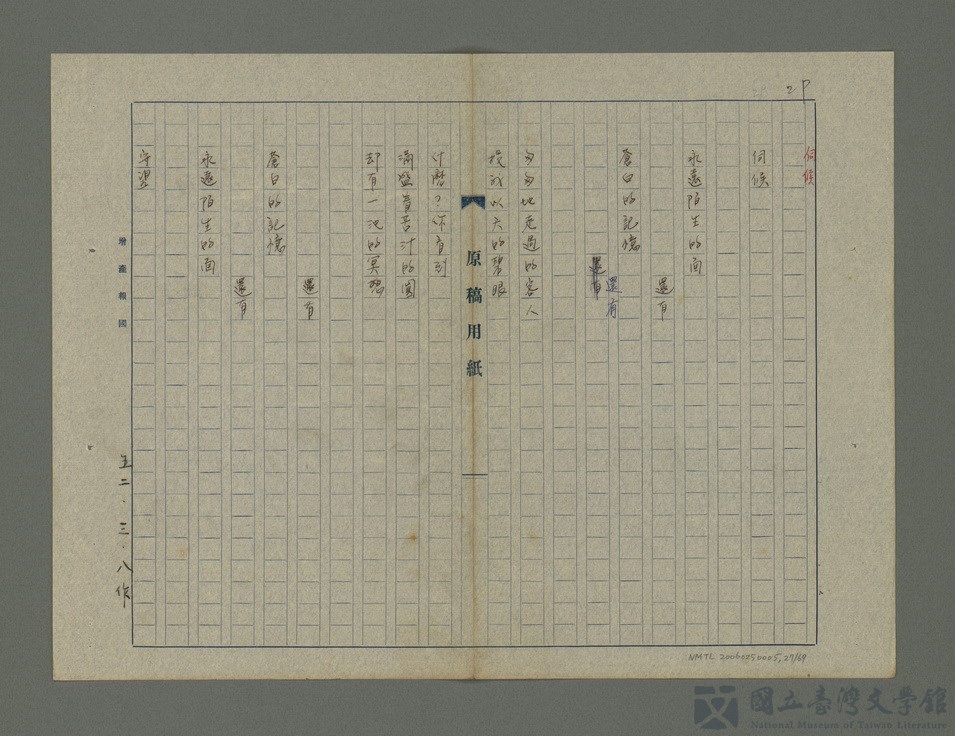 2P
伺候
伺候
永遠陌生的面
還有
蒼白的記憶
還有
還有
匆匆地走過的客人
投我以 的碧眼
原稿用紙
什麼?你看到
滿盛 苦汁的
却有一沉的冥想
還有
蒼白的記憶
還有
永遠陌生的面
守望
增產報國
五二・三・八作
NMTL 20060250005, 27/69
國立臺灣文學館
National Museum of Taiwan Literature